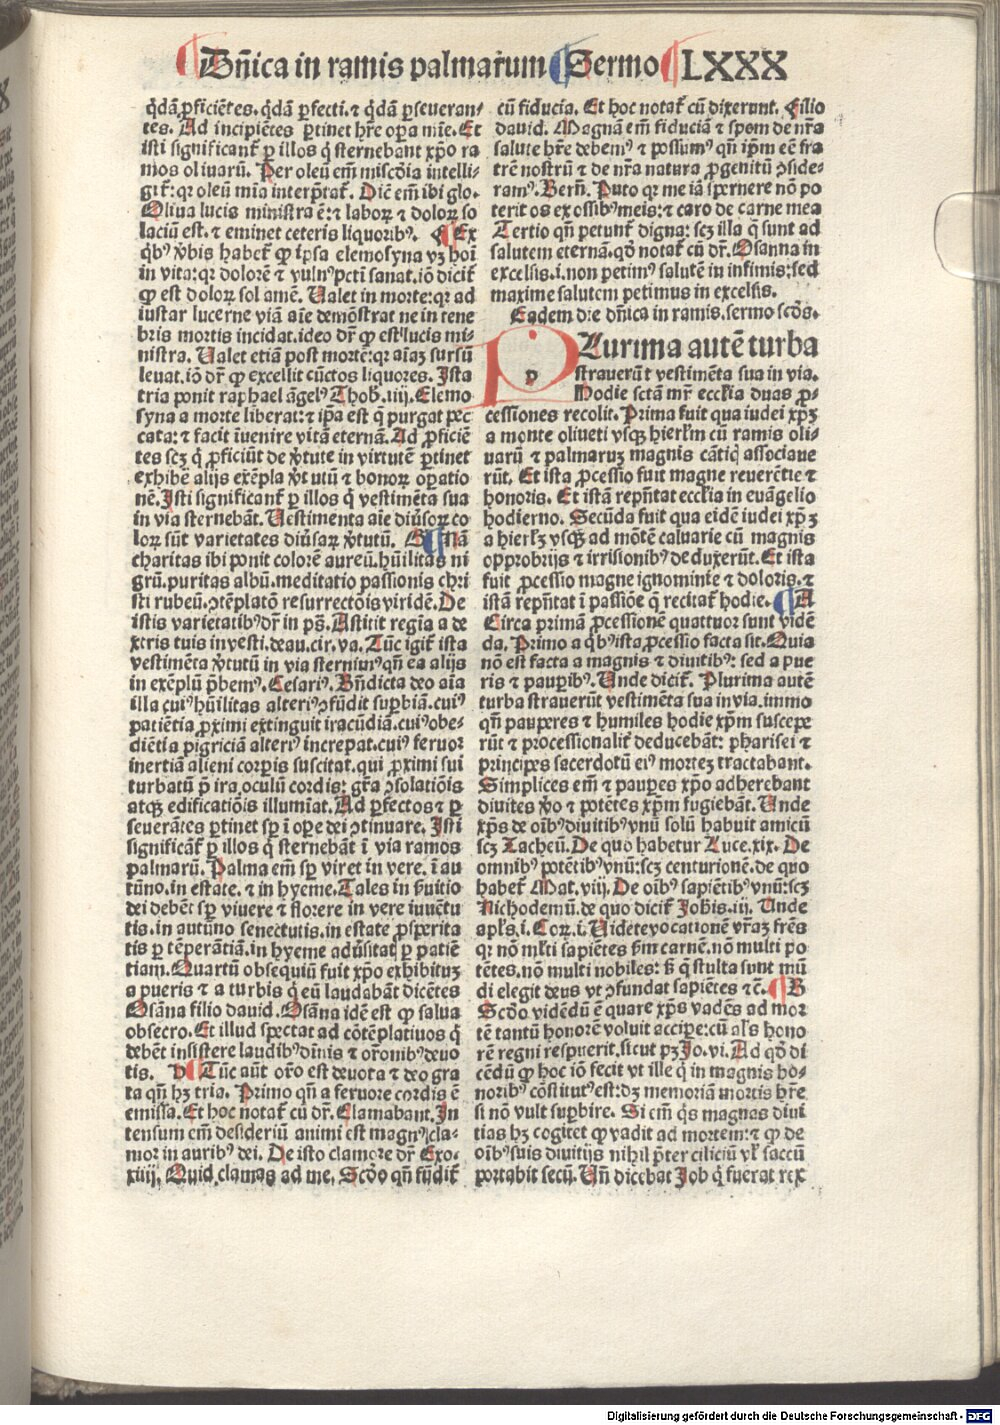 Dñica in ramis palmarum Sermo LXXX
q̇dã ꝓficiẽtes. q̇dã ꝑfecti. ⁊ q̇dã ꝑseueran⸗
tes. Ad incipiẽtes ꝑtinet hr̃e oꝑa mie. Et
isti significant᷑ ꝑ illos q̇ sternebant xp̃o ra
mos oliuarũ. Per oleũ em̃ miscðia intelli⸗
git᷑: qꝛ oleũ mĩa interp̃tat᷑. Dic̃ em̃ ibi glo.
Oliua lucis ministra ẽ: ⁊ laboꝝ ⁊ doloꝝ so
laciũ est. ⁊ eminet ceteris liquoribꝰ. Ex
q̇bꝰ ꝟbis habet᷑ ꝙ ip̃sa elemosyna vꝫ hoĩ
in vita: qꝛ dolorẽ ⁊ vulnꝰ pcti sanat. iõ dicit᷑
ꝙ est doloꝝ sol amẽ. Ualet in morte: qꝛ ad
iustar lucerne viã aĩe demõstrat ne in tene
bris mortis incidat. ideo dr̃ ꝙ est lucis mi⸗
nistra. Ualet etiã post mortẽ: qꝛ aĩaꝫ sursũ
leuat. iõ dr̃ ꝙ excellit cũctos liquores. Ista
tria ponit raphael ãgelꝰ Thob. iiij. Elemo
syna a morte liberat: ⁊ ip̃a est q̃ purgat pec
cata: ⁊ facit ĩuenire vitã eternã. Ad ꝓficiẽ
tes scꝫ q̇ ꝓficiũt de ꝟtute in virtutẽ ꝑtinet
exhibẽ alijs exẽpla ꝟtutũ ⁊ bonoꝝ oꝑatio
nẽ. Isti significant᷑ ꝑ illos q̇ vestimẽta sua
in via sternebãt. Uestimenta aĩe diũsoꝝ co
loꝝ sũt varietates diũsaꝝ ꝟtutũ. Nã
charitas ibi ponit colorẽ aureũ. hũilitas ni
grũ. puritas albũ. meditatio passionis chri
sti rubeũ. ꝯtẽplatõ resurrectõis viridẽ. De
istis varietatibꝰ dr̃ in pš. Astitit regĩa a de
xtris tuis in vesti. deau. cir. va. Tũc igit᷑ ista
vestimẽta ꝟtutũ in via sterniuꝰ qñ ea alijs
in exẽplũ p̃bemꝰ. Cesariꝰ. Bñdicta deo aĩa
illa cuiꝰ hũilitas alteriꝰ ꝯfũdit suꝑbiã. cuiꝰ
patiẽtia ꝓximi extinguit iracũdiã. cuiꝰ obe⸗
diẽtia pigriciã alteriꝰ increpat. cuiꝰ feruor
inertiã alieni corꝑis suscitat. qui ꝓximi sui
turbatũ p̃ ira oculũ cordis: gr̃a ꝯsolatiõis
atqꝫ edificatiõis illumĩat. Ad ꝑfectos ⁊ ꝑ
seuerãtes ꝑtinet sꝑ ĩ oꝑe dei ꝯtinuare. Isti
significãt᷑ ꝑ illos q̇ sternebãt ĩ via ramos
palmarũ. Palma em̃ sꝑ viret in vere. ĩ au
tũno. in estate. ⁊ in hyeme. Tales in ẜuitio
dei debẽt sꝑ viuere ⁊ florere in vere iuuẽtu
tis. in autũno senectutis. in estate ꝓsꝑita
tis ꝑ tẽperãtiã. in hyeme aduʼsitatꝭ ꝑ patiẽ
tiam. Quartũ obsequiũ fuit xp̃o exhibituꝫ
a pueris ⁊ a turbis q̇ eũ laudabãt dicẽtes
Osãna filio dauid. Osãna idẽ est ꝙ salua
obsecro. Et illud spectat ad cõtẽplatiuos q̇
debẽt insistere laudibꝰ diuĩnis ⁊ or̃onibꝰ deuo
tis. Tũc aũt or̃o est deuota ⁊ deo gra
ta qñ hꝫ tria. Primo qñ a feruore cordis ẽ
emissa. Et hoc notat᷑ cũ dr̃. Clamabant. In
tensum em̃ desideriũ animi est magnꝰ cla⸗
mor in auribꝰ dei. De isto clamore dr̃ Exo.
xiiij. Quid clamas ad me. Scðo qñ fũdit᷑
cũ fiducia. Et hoc notat᷑ cũ dixerunt. Filio
dauid. Magnã em̃ fiduciã ⁊ spem de nr̃a
salute hr̃e debemꝰ ⁊ possumꝰ qñ ip̃m eẽ fra
trẽ nostrũ ⁊ de nr̃a natura ꝓgenitũ ꝯside⸗
ramꝰ. Berñ. Puto qꝛ me iã spernere nõ po
terit os ex ossibꝰ meis: ⁊ caro de carne mea
Tertio qñ petunt᷑ digna: scꝫ illa q̃ sunt ad
salutem eternã. qð notat᷑ cũ dr̃. Osanna in
excelsis. i. non petimꝰ salutẽ in infimis: sed
maxime salutem petimus in excelsis.
Eadem die dñica in ramis. sermo scðs.
PLurima autẽ turba
strauerũt vestimẽta sua in via.
Hodie sctã mr̃ ecclia duas ꝓ⸗
cessiones recolit. Prima fuit qua iudei xp̃ꝫ
a monte oliueti vsqꝫ hierl̃m cũ ramis oli⸗
uarũ ⁊ palmaruꝫ magnis cãticꝭ associaue
rũt. Et ista ꝓcessio fuit magne reuerẽtie ⁊
honoris. Et istã rep̃ntat ecclĩa in euãgelio
hodierno. Secũda fuit qua eidẽ iudei xp̃ꝫ
a hierlꝫ vsqꝫ ad mõtẽ caluarie cũ magnis
opprobrijs ⁊ irrisionibꝰ de duxerũt. Et ista
fuit ꝓcessio magne ignominie ⁊ doloris. ⁊
istã rep̃ntat ĩ passiõe q̃ recitat᷑ hodie. A
Circa primã ꝓcessionẽ quattuor sunt vidẽ
da. Primo a q̇bꝰ ista ꝓcessio facta sit. Quia
nõ est facta a magnis ⁊ diuitibꝰ: sed a pue
ris ⁊ pauꝑibꝰ. Unde dicit᷑. Plurima autẽ
turba strauerũt vestimẽta sua in via. immo
qñ pauperes ⁊ humiles hodie xp̃m suscepe
rũt ⁊ processionalit᷑ deducebãt: pharisei ⁊
principes sacerdotũ eiꝰ morteꝫ tractabant.
Simplices em̃ ⁊ pauꝑes xp̃o adherebant
diuites ꝟo ⁊ potẽtes xp̃m fugiebãt. Unde
xp̃s de oĩbꝰ diuitibꝰ vnũ solũ habuit amicũ
scꝫ Zacheũ. De quo habetur Luce. xix. De
omnibꝰ potẽtibꝰ vnũ: scꝫ centurionẽ. de quo
habet᷑ Mat. viij. De oĩbꝰ sapiẽtibꝰ vnũ: scꝫ
Nichodemũ. de quo dicit᷑ Johis. iij. Unde
apl̃s. i. Cor. i. Uidete vocationẽ vr̃aꝫ fr̃es
qꝛ nõ ml̃ti sapiẽtes ẜm carnẽ. nõ multi po
tẽtes. nõ multi nobiles: ẜ q̃ stulta sunt mũ
di elegit deus vt ꝯfundat sapiẽtes ⁊ c̃. B
Scðo vidẽdũ ẽ quare xp̃s vadẽs ad mor
tẽ tantũ honorẽ voluit acciꝑe: cũ al̃s hono
rẽ regni respuerit. sicut pꝫ Jo. vi. Ad qð di
cẽdũ ꝙ hoc iõ fecit vt ille q̇ in magnis ho⸗
noribꝰ cõstitutꝰ est: dꝫ memoriã mortis hr̃e
si nõ vult suꝑbire. Si em̃ q̇s magnas diui
tias hꝫ cogitet ꝙ vadit ad mortem: ⁊ ꝙ de
oĩbꝰ suis diuitijs nihil p̃ter ciliciũ vl̃ saccũ
portabit secũ. Uñ dicebat Job q̇ fuerat rex
Digitalisierung gefördert durch die Deutsche Forschungsgemeinschaft - DFG